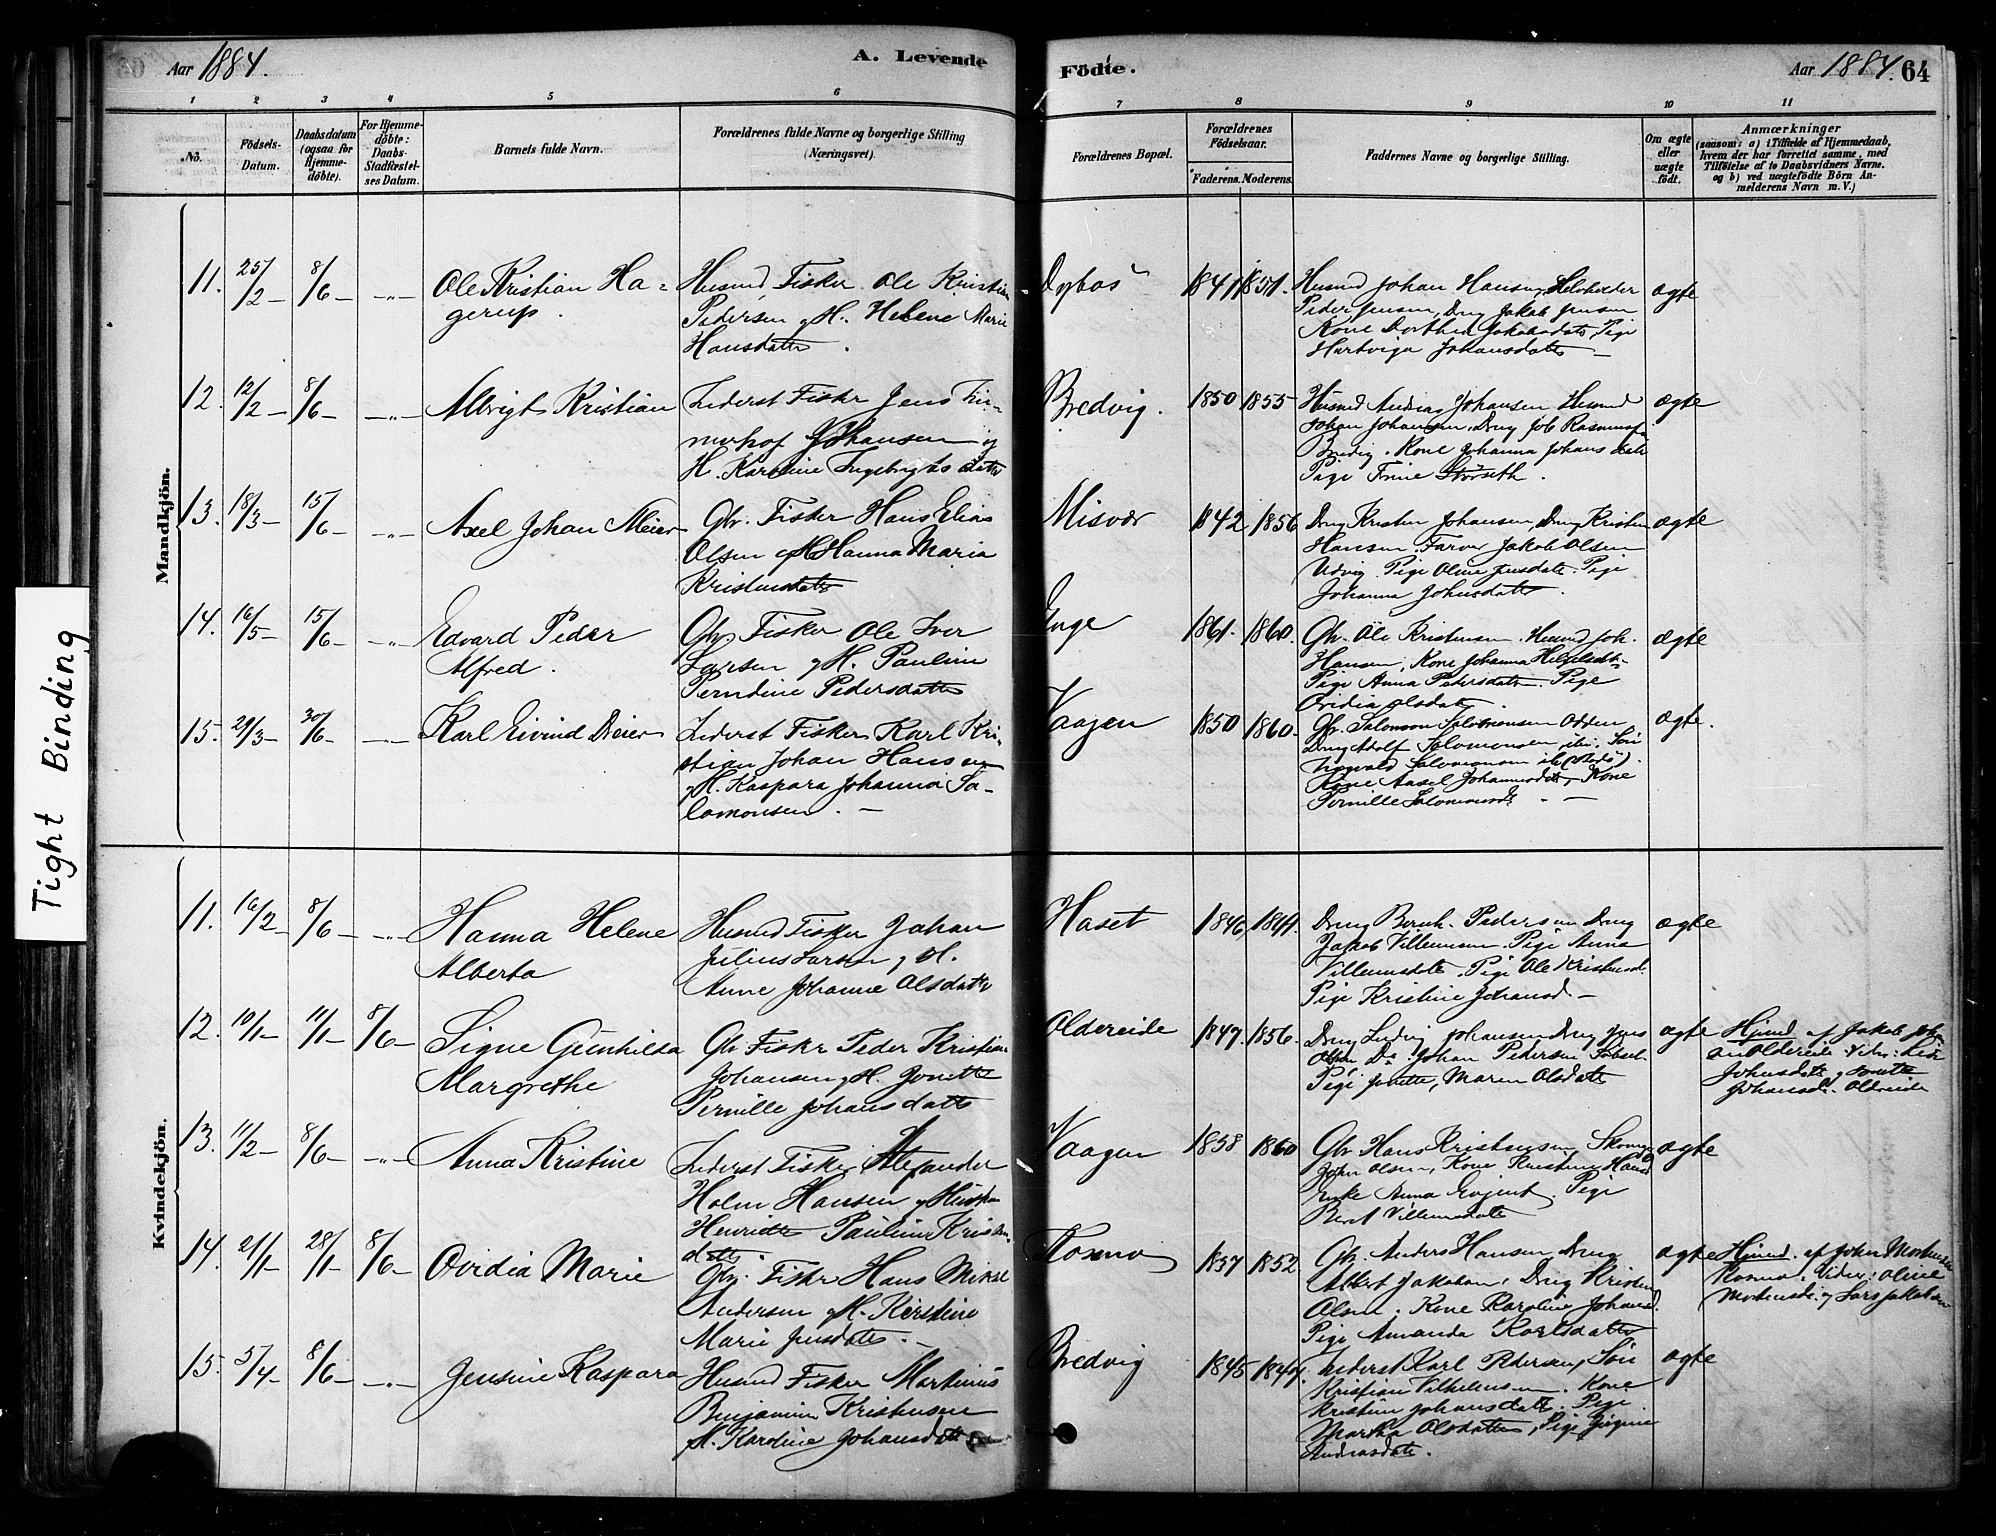 Aar 1884.
A. Levende
Födte.
Aar 1884. 64
1 2 3 4 5 6 7 8 9 10 11
No.
Födsels-
Datum.
Daabsdatum
(ogsaa for
Hjemme-
döbte).
For Hjemme-
döbte:
Daabs-
Stadfæstel-
ses Datum.
Barnets fulde Navn.
Forældrenes fulde Navne og borgerlige Stilling
(Næringsvei).
Forældrenes Bopæl.
Forældrenes
Födselsaar.
Faderens. Moderens.
Faddernes Navne og borgerlige Stilling.
Om ægte
eller
uægte
födt.
Anmærkninger
(saasom: a) i Tilfælde af Hjemmedaab,
hvem der har forrettet samme, med
Tilföielse af to Daabsvidners Navne.
og b) ved uægtefödte Börn An-
melderens Navn m. V.)
Mandkjön.
11. 25/2 8/6 -"-
Ole Kristian Ha-
gerup.
Husmd Fisker Ole Kristian
Pedersen og H. Helene Marie
Hansdatter.
1841 1851.
Husmd Johan Hansen,
Peder Jensen, Dreng Jakob Jensen
Kone Dorthea Jakobsdatr, Pige
Hartviga Johansdatter
ægte
12. 12/2 8/6 -"-
Albrigt Kristian
Inderst Fisker Jens
Johansen og
H. Karoline Ingebrigtsdatter
Bredvig.
1850 1855
Husmd Andreas Johansen Husmd
Johan Johansen, Dreng Job
Bredvig. Kone Johanna Johansdatr
Pige Trine Störseth.
ægte
13. 18/3 15/6 -"-
Axel Johan Meier
Gbr. Fisker Hans Elias
Olsen og H. Hanna Maria
Kristensdatter
Misvær
1842 1856
Dreng Kristen Johansen, Dreng Kristen
Hansen, Farver Jakob Olsen
Udvig. Pige Oline Jensdatr. Pige
Johanna Johnsdatter.
ægte
14. 16/5 15/6 -"-
Edvard Peder
Alfred.
Gbr. Fisker Ole Iver
Larsen og H. Pauline
Perndine Pedersdatter
Enge
1861. 1860.
Gbr. Ole Kristensen. Husmd Joh.
Hansen, Kone Johanna
Pige Anna Pedersdatr. Pige
Ovidia Olsdatr.
ægte
15. 29/3 30/6 -"-
Karl Eivind Dreier
Inderst Fisker Karl Kri-
stian Johan Hansen
og H. Kaspara Johanna Sa-
lomonsen.
Vaagen
1850 1860.
Gbr. Salomon Salomonsen Odden
Dreng Adolf Salomonsen ibi. Sön
Salomonsen ib
Kone Aasel Johannesdatr, Kone
Pernille Salomonsd.
ægte.
Kvindekjön.
11. 16/2 8/6 -"-
Hanna Helene
Alberta
Husmd Fisker Johan
Julius Larsen og H.
Anne Johanne Olsdatter
Haset
1846, 1841.
Dreng Bernh. Pedersen Dreng
Jakob Villumsen. Pige Anna
Villumsdatr. Pige Ole Kristensd.
Pige Kristine Johansd.
ægte
12. 10/1 11/1 8/6
Signe Gunhilda
Margrethe
Gbr Fisker Peder Kristian
Johansen og H. Jonette
Pernille Johansdatter
Oldereide
1847. 1856.
Dreng Ludvig Johansen Dreng Jens
Olsen Do Johan Pedersen
Pige Jonette, Maren Olsdatr
ægte
Hjmd. af Jakob
Oldereide. Vidn:
Johnsdatr og Jonette
Johansd. Oldereide
13. 11/2 8/6 -"-
Anna Kristine
Inderst Fisker Alexander
Holm Hansen og Hustru
Henriette Pauline Kristens-
datter.
Vaagen
1858 1860
Gbr Hans Kristensen,
John Olsen, Kone Kristine Hansd
Enke Anna Evjent. Pige
Berit Villumsdatr
ægte
14. 21/1 28/1 8/6
Ovidia Marie
Gbr. Fisker Hans Mikal
Andersen og H. Kirstine
Marie Jensdatter.
Kosmo
1857 1852.
Gbr. Anders Hansen Dreng
Albert Jakobsen, Dreng Kristen
Olsen. Kone Karoline Johansd.
Pige Amanda Karlsdatter
ægte
Hjmd. af John Mortensen
Kosmo. Vidn: Oline
Mortensd. og Lars Jakobsen
15. 5/4 8/6 -"-
Jensine Kaspara
Husmd Fisker Martinus
Benjamin Kristensen
og H. Karoline Johansdatr
Bredvig
1845 1847.
Inderst Karl Pedersen, Sön
Kristian Vilhelmsen. Kone
Kristine Johansdatr. Pige
Martha Olsdatter, Pige
Andreasdatr.
ægte
Tight Binding